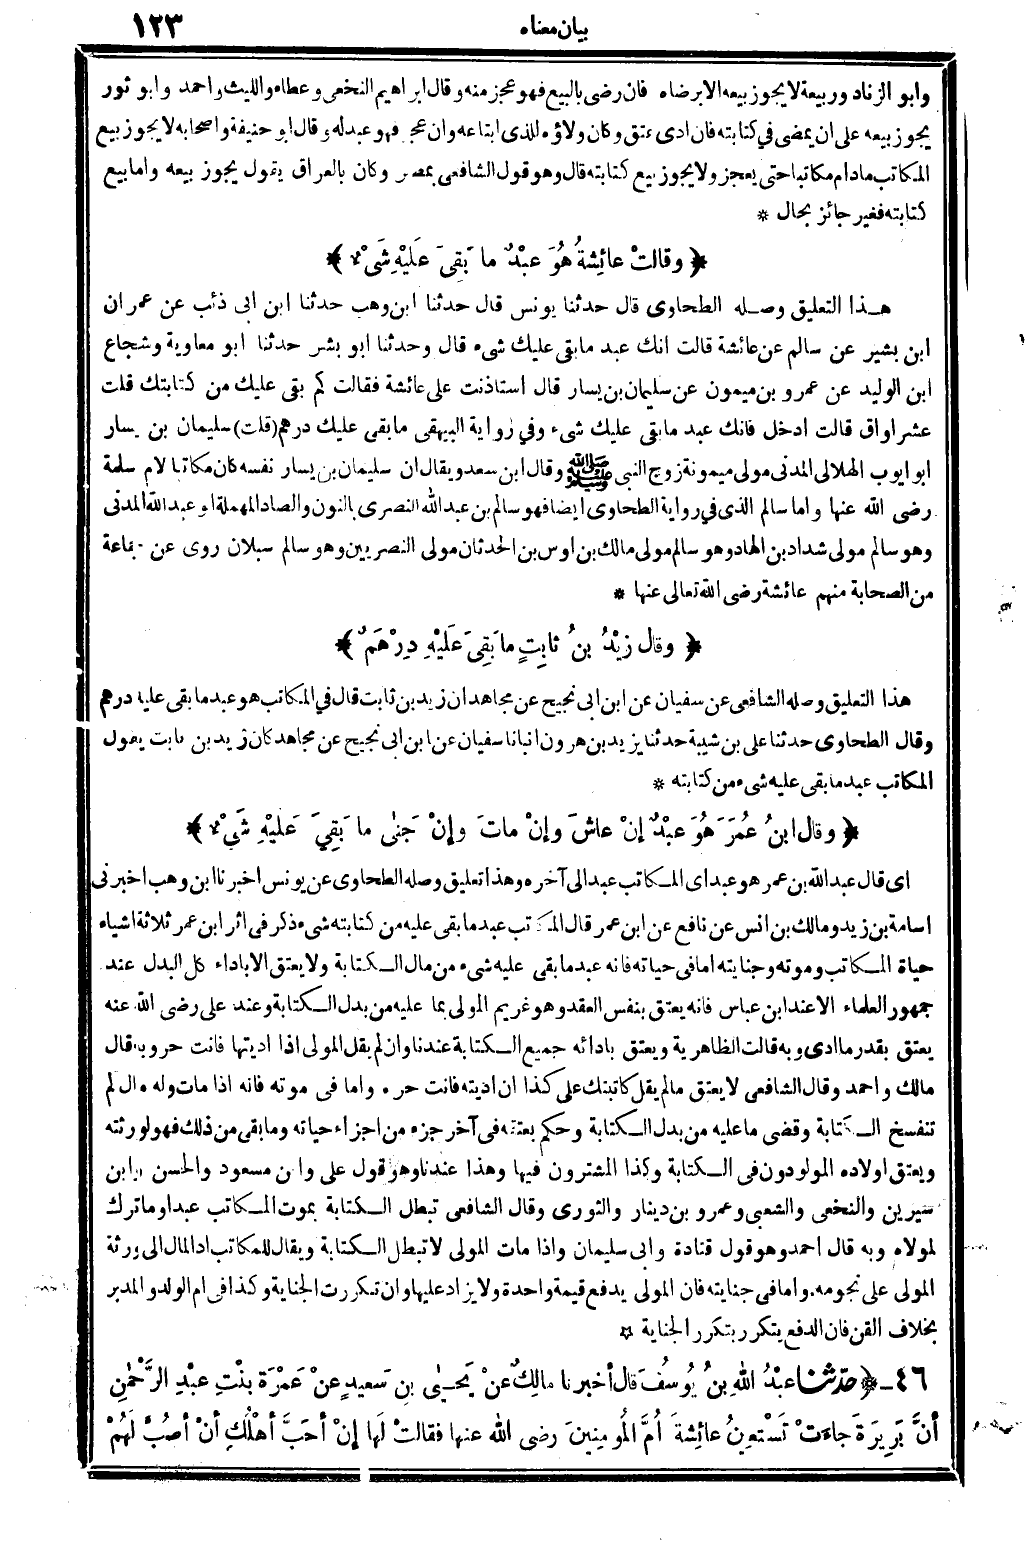 بيان معناه ١٢٣
وابو الزناد وربيعة لا يجوز بيعه الا برضاه فان رضى بالبيع فهو عجز منه وقال ابراهيم النخعى وعطاء والليث واحمد وابو ثور
يجوز بيعه على ان يمضى في كتابته فان ادى عتق وكان ولاؤه للذى ابتاعه وان عجز فهو عبد له وقال ابو حنيفة واصحابه لا يجوز بيع
المكاتب مادام مكاتبا حتى يعجز ولا يجوز بيع كتابته قال وهو قول الشافعى بمصر وكان بالعراق يقول يجوز بيعه واما بيع
كتابته فغير جائز بحال *
﴿ وقالتْ عائِشةُ هُوَ عبْدٌ ما بَقِىَ عَلَيْهِ شَىْءٌ ﴾
هذا التعليق وصله الطحاوى قال حدثنا يونس قال حدثنا ابن وهب حدثنا ابن ابى ذئب عن عمران
ابن بشير عن سالم عن عائشة قالت انك عبد مابقى عليك شىء قال وحدثنا ابو بشر حدثنا ابو معاوية وشجاع
ابن الوليد عن عمرو بن ميمون عن سليمان بن يسار قال استاذنت على عائشة فقالت كم بقى عليك من كتابتك قلت
عشر اواق قالت ادخل فانك عبد مابقى عليك شىء وفي رواية البيهقى مابقى عليك درهم (قلت) سليمان بن يسار
ابو ايوب الهلالى المدنى مولى ميمونة زوج النبى ﷺ وقال ابن سعد ويقال ان سليمان بن يسار نفسه كان مكاتبا لام سلمة
رضى الله عنها واما سالم الذى في رواية الطحاوى ايضا فهو سالم بن عبد الله النصرى بالنون والصاد المهملة ابو عبد الله المدنى
وهو سالم مولى شداد بن الهاد وهو سالم مولى مالك بن اوس بن الحدثان مولى النصريين وهو سالم سبلان روى عن جماعة
من الصحابة منهم عائشة رضى الله تعالى عنها *
﴿ وقال زيْدُ بنُ ثابِتٍ ما بَقِىَ عَلَيْهِ دِرْهَمٌ ﴾
هذا التعليق وصله الشافعى عن سفيان عن ابن ابى نجيح عن مجاهد ان زيد بن ثابت قال في المكاتب هو عبد مابقى عليه درهم
وقال الطحاوى حدثنا على بن شيبة حدثنا يزيد بن هرون انبانا سفيان عن ابن ابى نجيح عن مجاهد كان زيد بن ثابت يقول
المكاتب عبد مابقى عليه شىء من كتابته *
﴿ وقال ابنُ عُمَرَ هُوَ عبْدٌ إنْ عاشَ وإنْ ماتَ وإنْ جَنٰى ما بَقِيَ عَلَيْهِ شَىْءٌ ﴾
اى قال عبد الله بن عمر هو عبد اى المكاتب عبد الى آخره وهذا تعليق وصله الطحاوى عن يونس اخبرنا ابن وهب اخبرنى
اسامة بن زيد ومالك بن انس عن نافع عن ابن عمر قال المكاتب عبد مابقى عليه من كتابته شىء ذكر فى اثر ابن عمر ثلاثة اشياء
حياة المكاتب وموته وجنايته اما فى حياته فانه عبد مابقى عليه شىء من مال الكتابة ولا يعتق الا باداء كل البدل عند
جمهور العلماء الا عند ابن عباس فانه يعتق بنفس العقد وهو غريم المولى بما عليه من بدل الكتابة وعند على رضى الله عنه
يعتق بقدر ما ادى وبه قالت الظاهرية ويعتق بادائه جميع الكتابة عندنا وان لم يقل المولى اذا اديتها فانت حر وبه قال
مالك واحمد وقال الشافعى لا يعتق مالم يقل كاتبتك على كذا ان اديته فانت حر ٠ واما فى موته فانه اذا مات وله مال لم
تنفسخ الكتابة وقضى ما عليه من بدل الكتابة وحكم بعتقه فى آخر جزء من اجزاء حياته ومابقى من ذلك فهو لورثته
ويعتق اولاده المولودون فى الكتابة وكذا المشترون فيها وهذا عندنا وهو قول على وابن مسعود والحسن وابن
سيرين والنخعى والشعبى وعمرو بن دينار والثورى وقال الشافعى تبطل الكتابة بموت المكاتب عبدا وما ترك
لمولاه وبه قال احمد وهو قول قتادة وابى سليمان واذا مات المولى لا تبطل الكتابة ويقال للمكاتب اد المال الى ورثة
المولى على نجومه. واما فى جنايته فان المولى يدفع قيمة واحدة ولا يزاد عليها وان تكررت الجناية وكذا فى ام الولد والمدبر
بخلاف القن فان الدفع يتكرر بتكرر الجناية *
٤٦ - ﴿ حَدَّثَنَا عبْدُ اللهِ بنُ يُوسُفَ قال أخبرنا مالِكٌ عنْ يَحيٰى بنِ سَعيدٍ عنْ عَمْرَةَ بِنْتِ عبْدِ الرَّحْمٰنِ
أنَّ بَرِيرَةَ جاءَتْ تَسْتَعِينُ عائِشةَ أُمَّ المُومِنِينَ رضى الله عنها فقالتْ لَها إنْ أحَبَّ أهْلُكِ أنْ أصُبَّ لَهُمْ